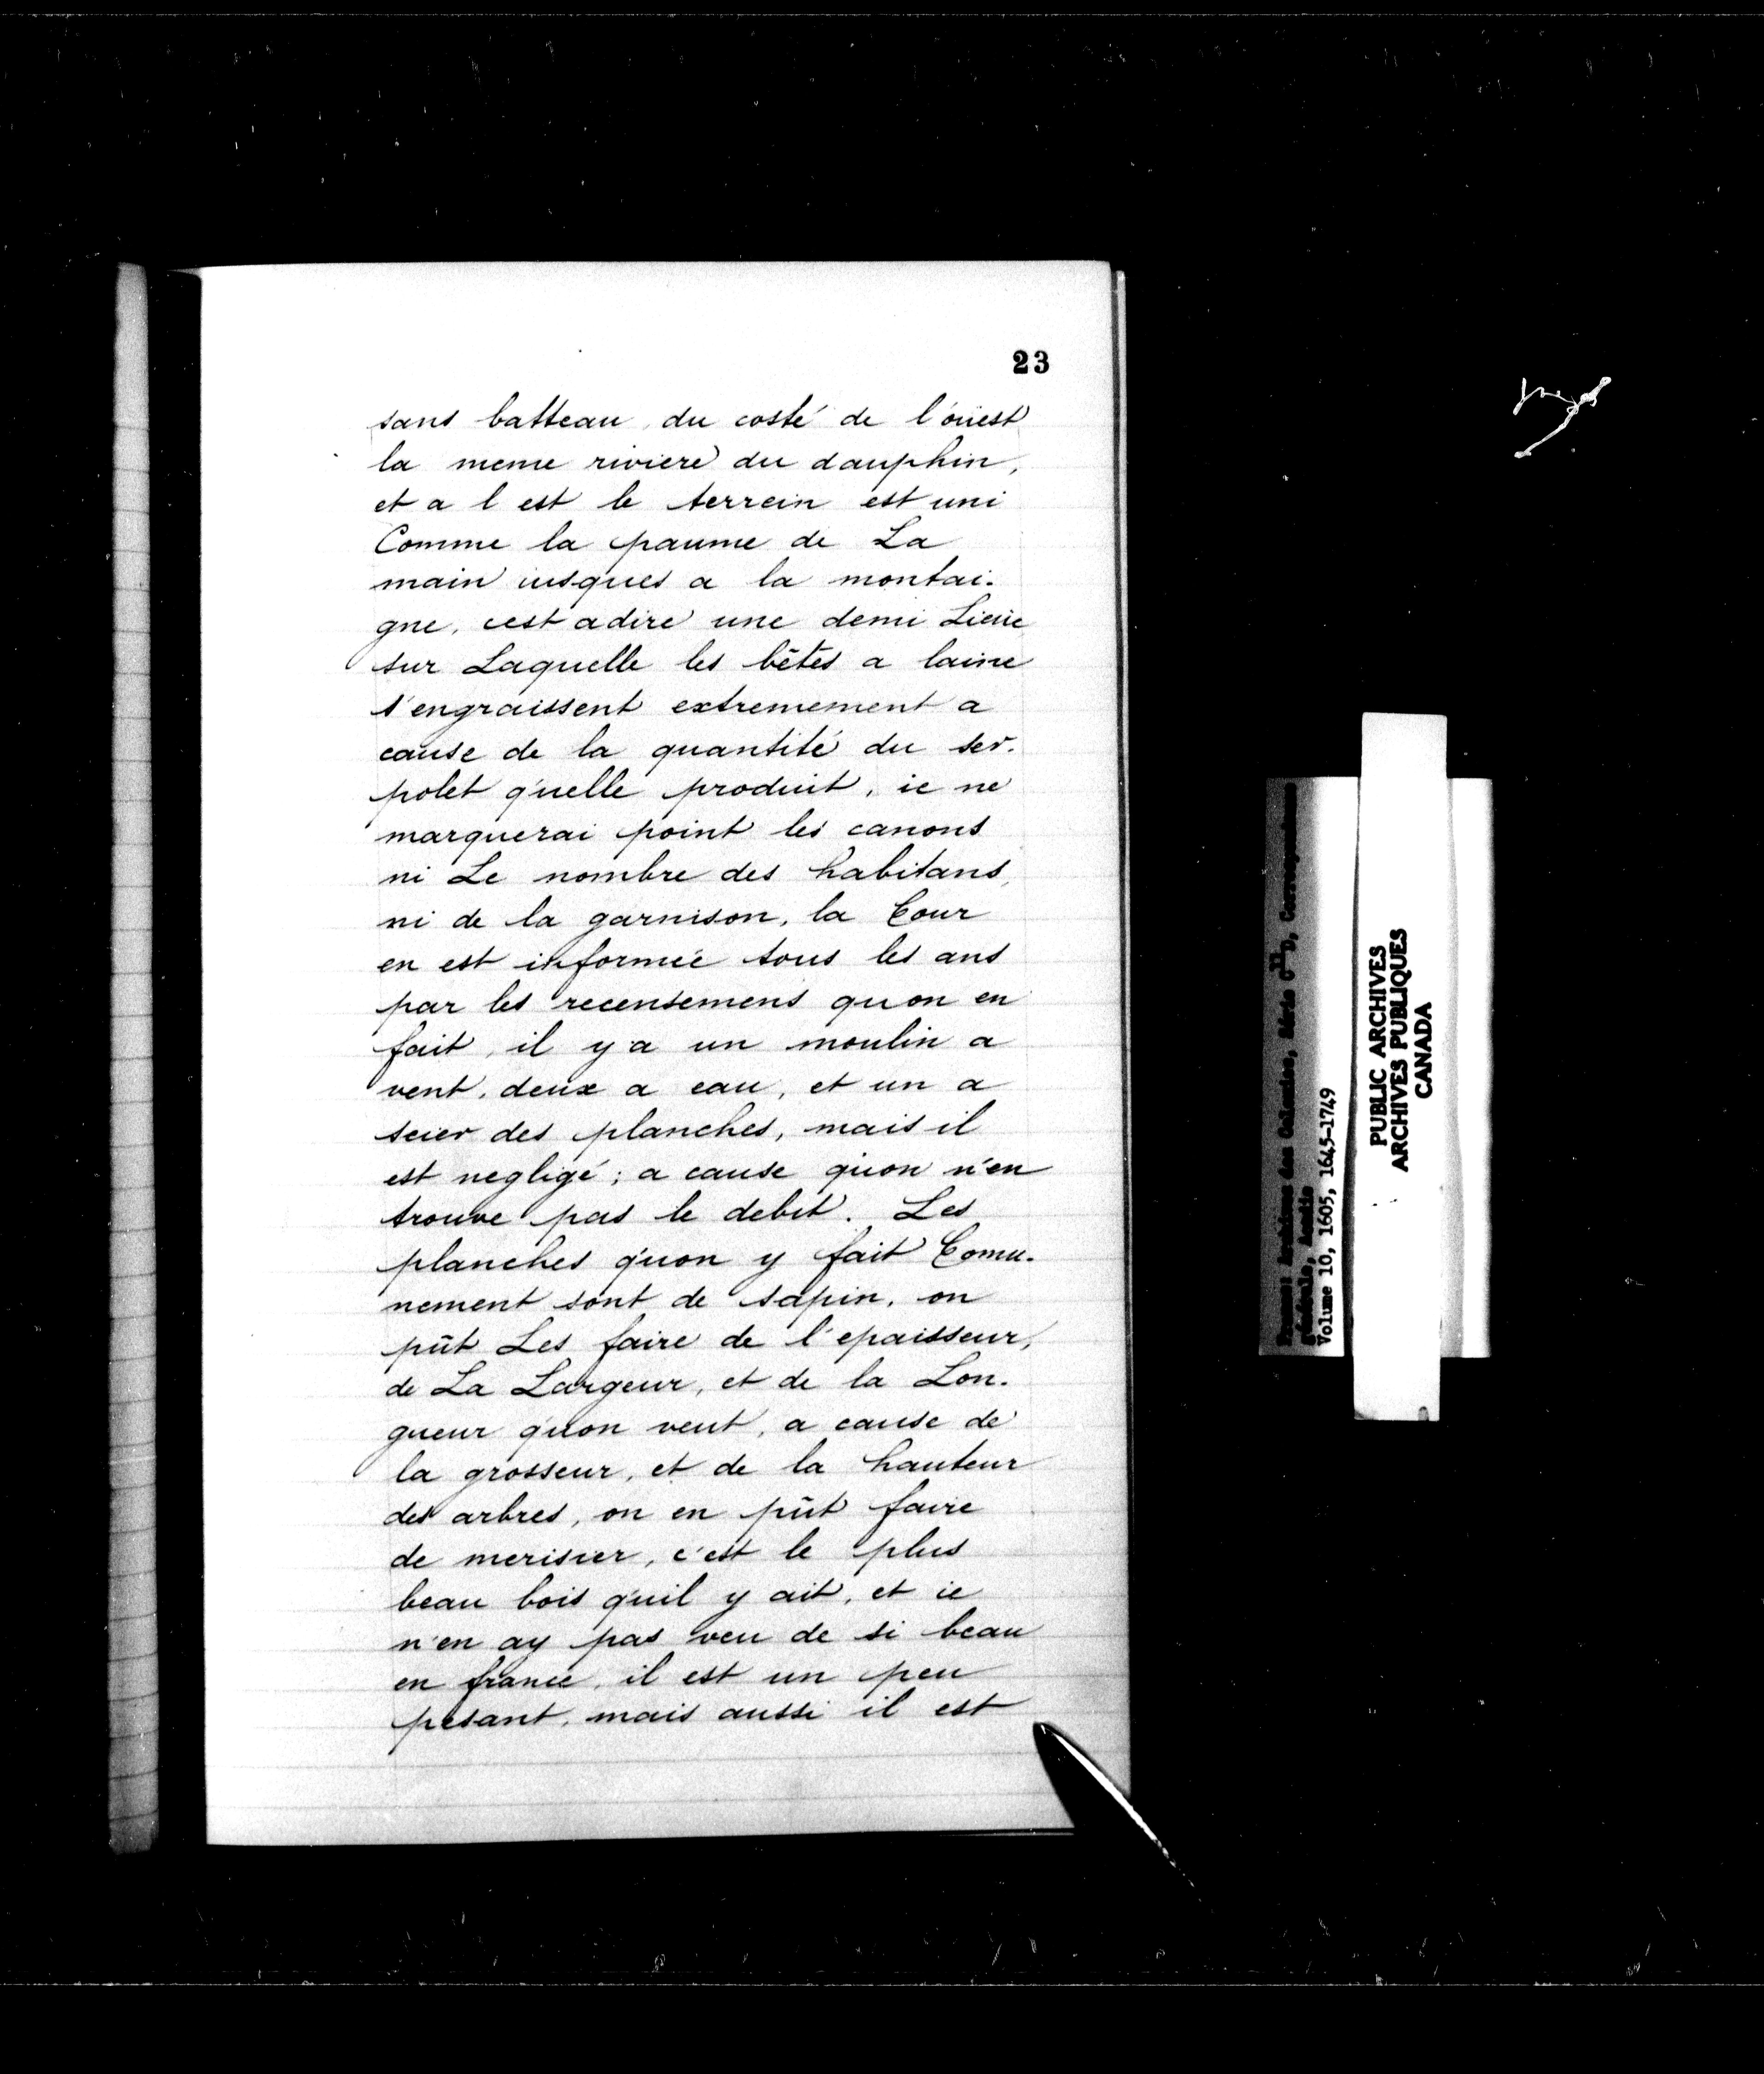 23
sans batteau, du costé de l'oüest
la meme riviere du dauphin,
et a l est le terrein est uni
Comme la paume de La
main iusques a la montai-
gne, cest adire une demi Lieüe
sur Laquelle les bêtes a laine
s'engraissent extremement a
cause de la quantité du ser-
polet q'uelle produit, ie ne
marquerai point les canons
ni Le nombre des habitans,
ni de la garnison, la Cour
en est informée tous les ans
par les recensemens qu on en
fait, il y a un moulin a
vent, deux a eau, et un a
scier des planches, mais il
est negligé; a cause q'uon n'en
trouve pas le debit. Les
planches q'uon y fait Comu-
nement sont de sapin, on
pût Les faire de l'epaisseur,
de La Largeur, et de la Lon-
gueur q'uon veut, a cause de
la grosseur, et de la hauteur
des arbres, on en pût faire
de merisier, c'est le plus
beau bois q'uil y ait, et ie
n'en ay pas veu de si beau
en france, il est un peu
pesant, mais aussi il est
France: Archives des Colonies, Série C11D, Correspondance
générale, Acadie
Volume 10, 1605, 1645-1749
PUBLIC ARCHIVES
ARCHIVES PUBLIQUES
CANADA